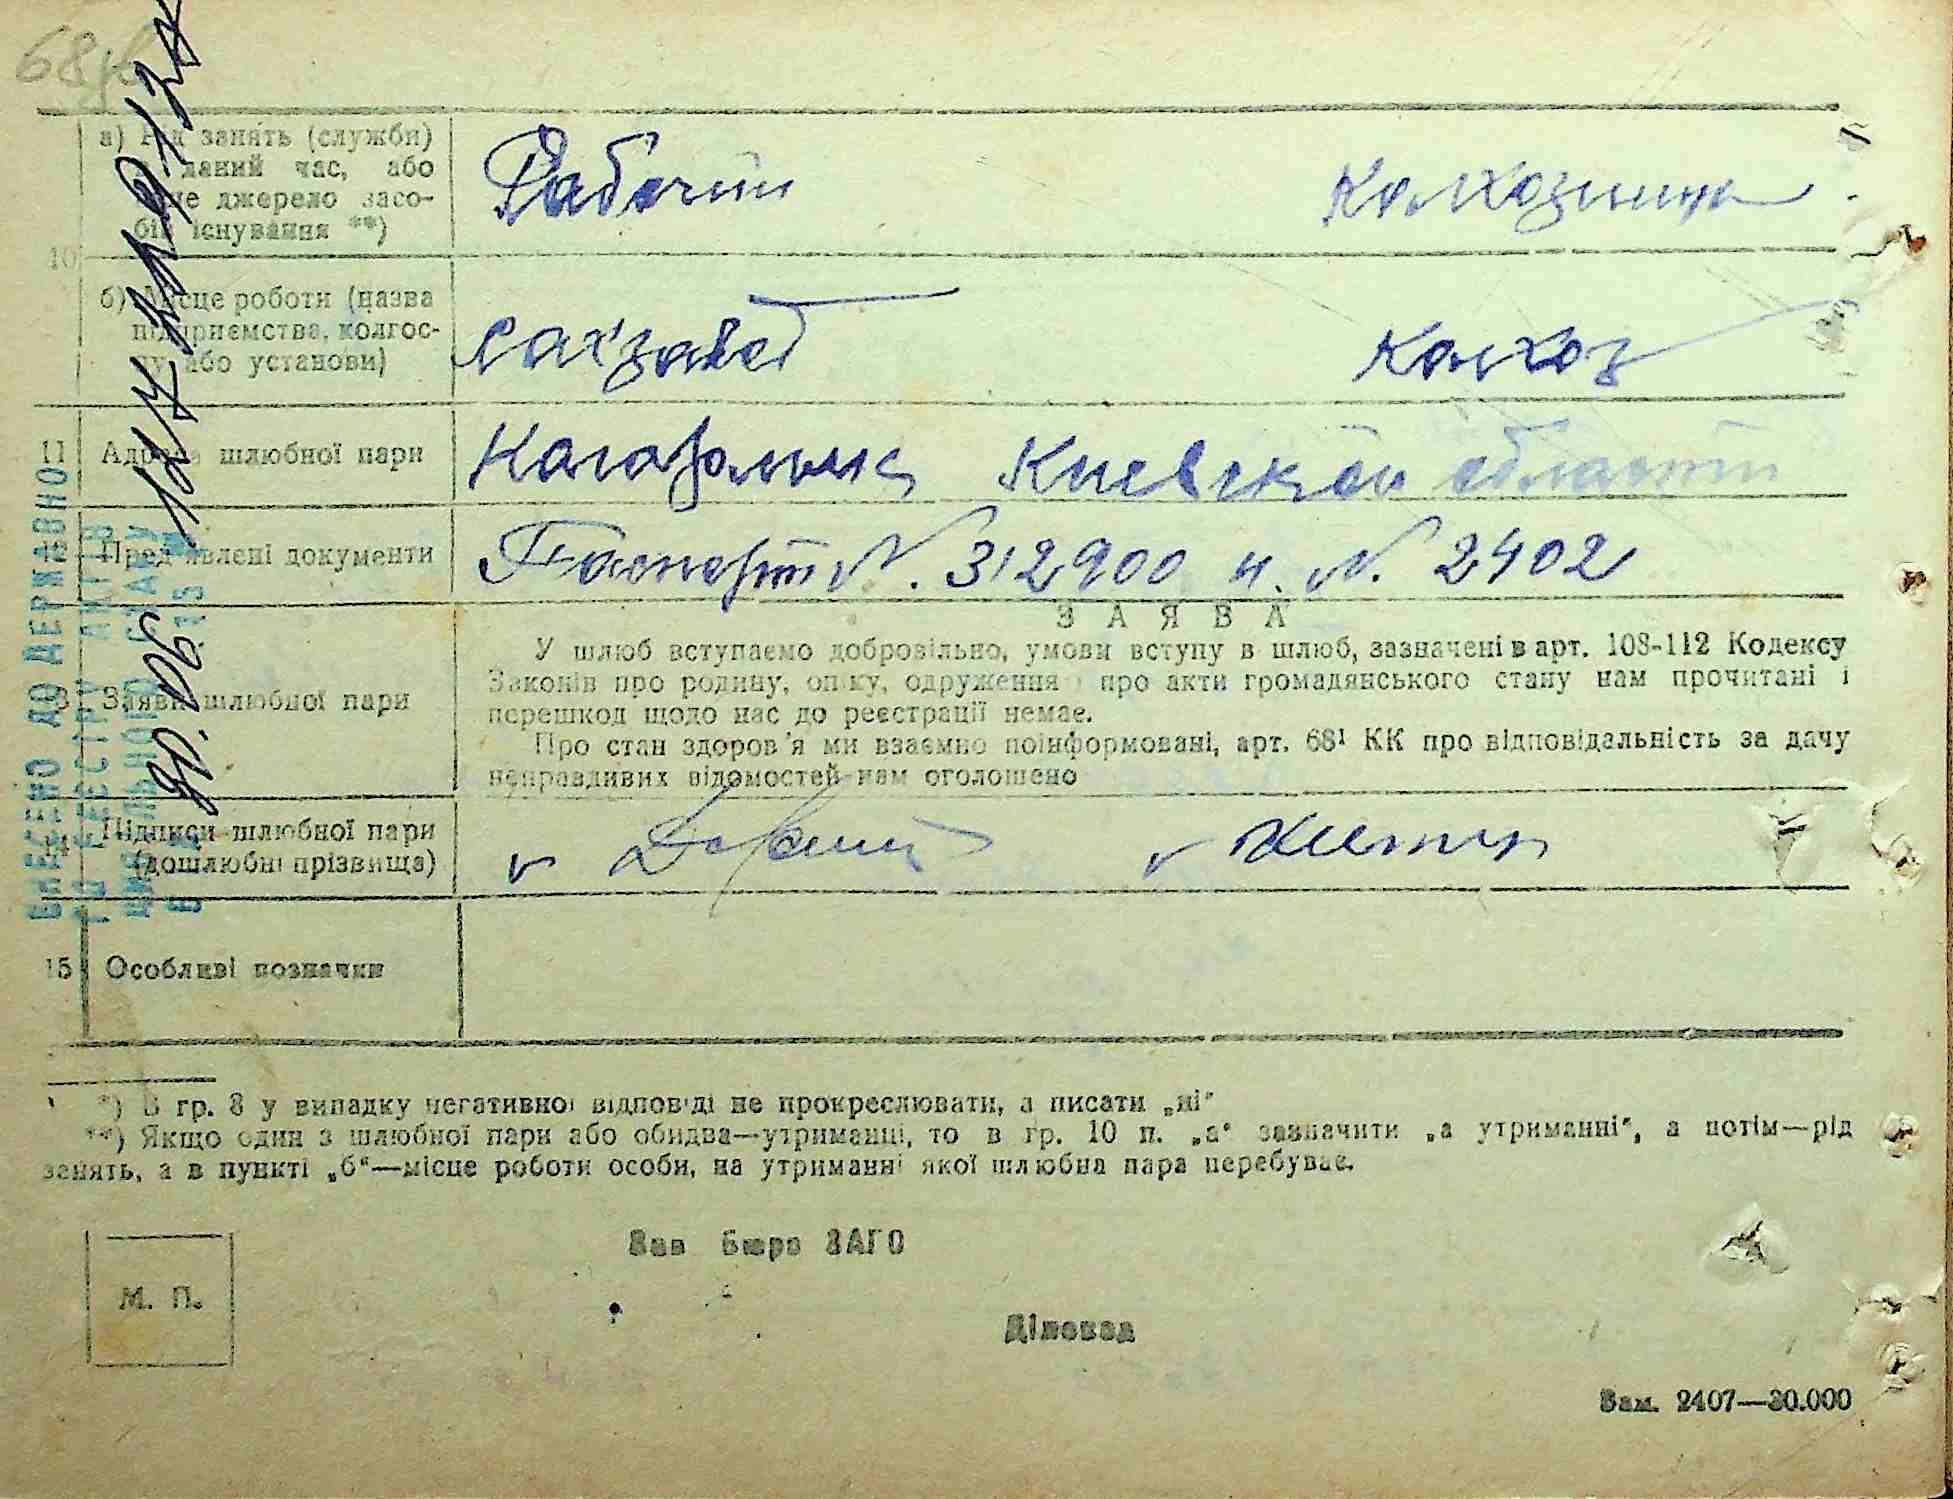 68
а) Рід занять (служби)
в даний час, або
інше джерело засо-
бів існування **)
Рабочий
Колхозница
10
б) Місце роботи (назва
підприємства, колгос-
пу або установи)
Сахзавод
Колхоз
11 Адреса шлюбної пари
Кагарлык Киевской области
12 Пред'явлені документи
Паспорт N. 312900 и N. 2402
13 Заява шлюбної пари
ЗАЯВА
У шлюб вступаємо добровільно, умови вступу в шлюб, зазначені в арт. 108-112 Кодексу
Законів про родину, опіку, одруження і про акти громадянського стану нам прочитані і
перешкод щодо нас до реєстрації немає.
Про стан здоров'я ми взаємно поінформовані, арт. 68¹ КК про відповідальність за дачу
неправдивих відомостей нам оголошено
14 Підписи шлюбної пари
(дошлюбні прізвища)
15 Особливі позначки
*) В гр. 8 у випадку негативної відповіді не прокреслювати, а писати „ні"
**) Якщо один з шлюбної пари або обидва—утриманці, то в гр. 10 п. „а" зазначити „а утриманні", а потім—рід
занять, а в пункті „б"—місце роботи особи, на утриманні якої шлюбна пара перебуває.
Зав бюро ЗАГС
М. П.
Діловод
Зам. 2407—30.000
ВНЕСЕНО ДО ДЕРЖАВНО
ГО РЕЄСТРУ АКТІВ
ЦИВІЛЬНОГО СТАНУ